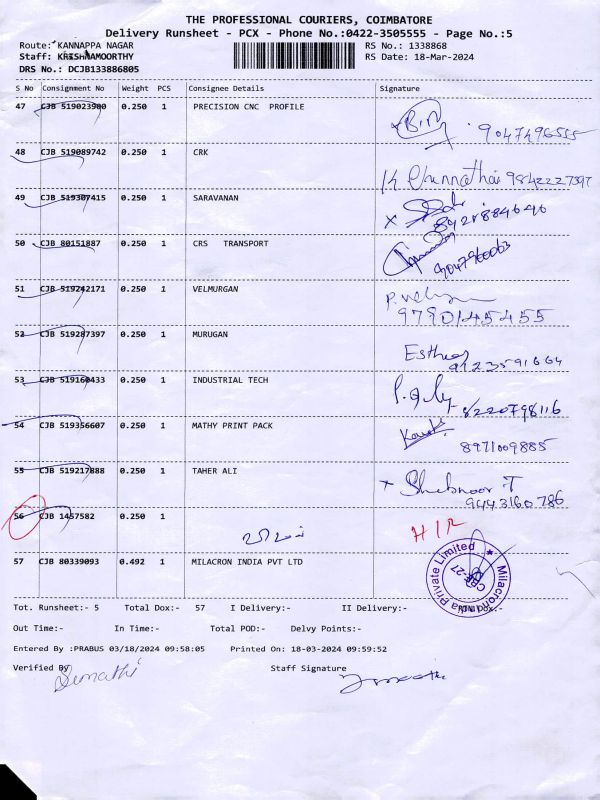 THE PROFESSIONAL COURIERS, COIMBATORE
Delivery Runsheet - PCX - Phone No.:0422-3505555 - Page No.:5
Route: KANNAPPA NAGAR RS No.: 1338868
Staff: KRISHNAMOORTHY RS Date: 18-Mar-2024
DRS No.: DCJB133886805
S No Consignment No Weight PCS Consignee Details Signature
47 CJB 519023900 0.250 1 PRECISION CNC PROFILE
48 CJB 519089742 0.250 1 CRK
9842227397
49 CJB 519307415 0.250 1 SARAVANAN
50 CJB 80151887 0.250 1 CRS TRANSPORT
51 CJB 519242171 0.250 1 VELMURGAN
9790145455
52 CJB 519287397 0.250 1 MURUGAN
Esther
9123591664
53 CJB 519160433 0.250 1 INDUSTRIAL TECH
8220798116
54 CJB 519356607 0.250 1 MATHY PRINT PACK
8971009885
55 CJB 519217888 0.250 1 TAHER ALI
Shebnoor T
9443160786
56 CJB 1457582 0.250 1
57 CJB 80339093 0.492 1 MILACRON INDIA PVT LTD
Milacron India Private Limited
CBE-27
Tot. Runsheet:- 5 Total Dox:- 57 I Delivery:- II Delivery:-
Out Time:- In Time:- Total POD:- Delvy Points:-
Entered By :PRABUS 03/18/2024 09:58:05 Printed On: 18-03-2024 09:59:52
Verified By Staff Signature
Sumathi